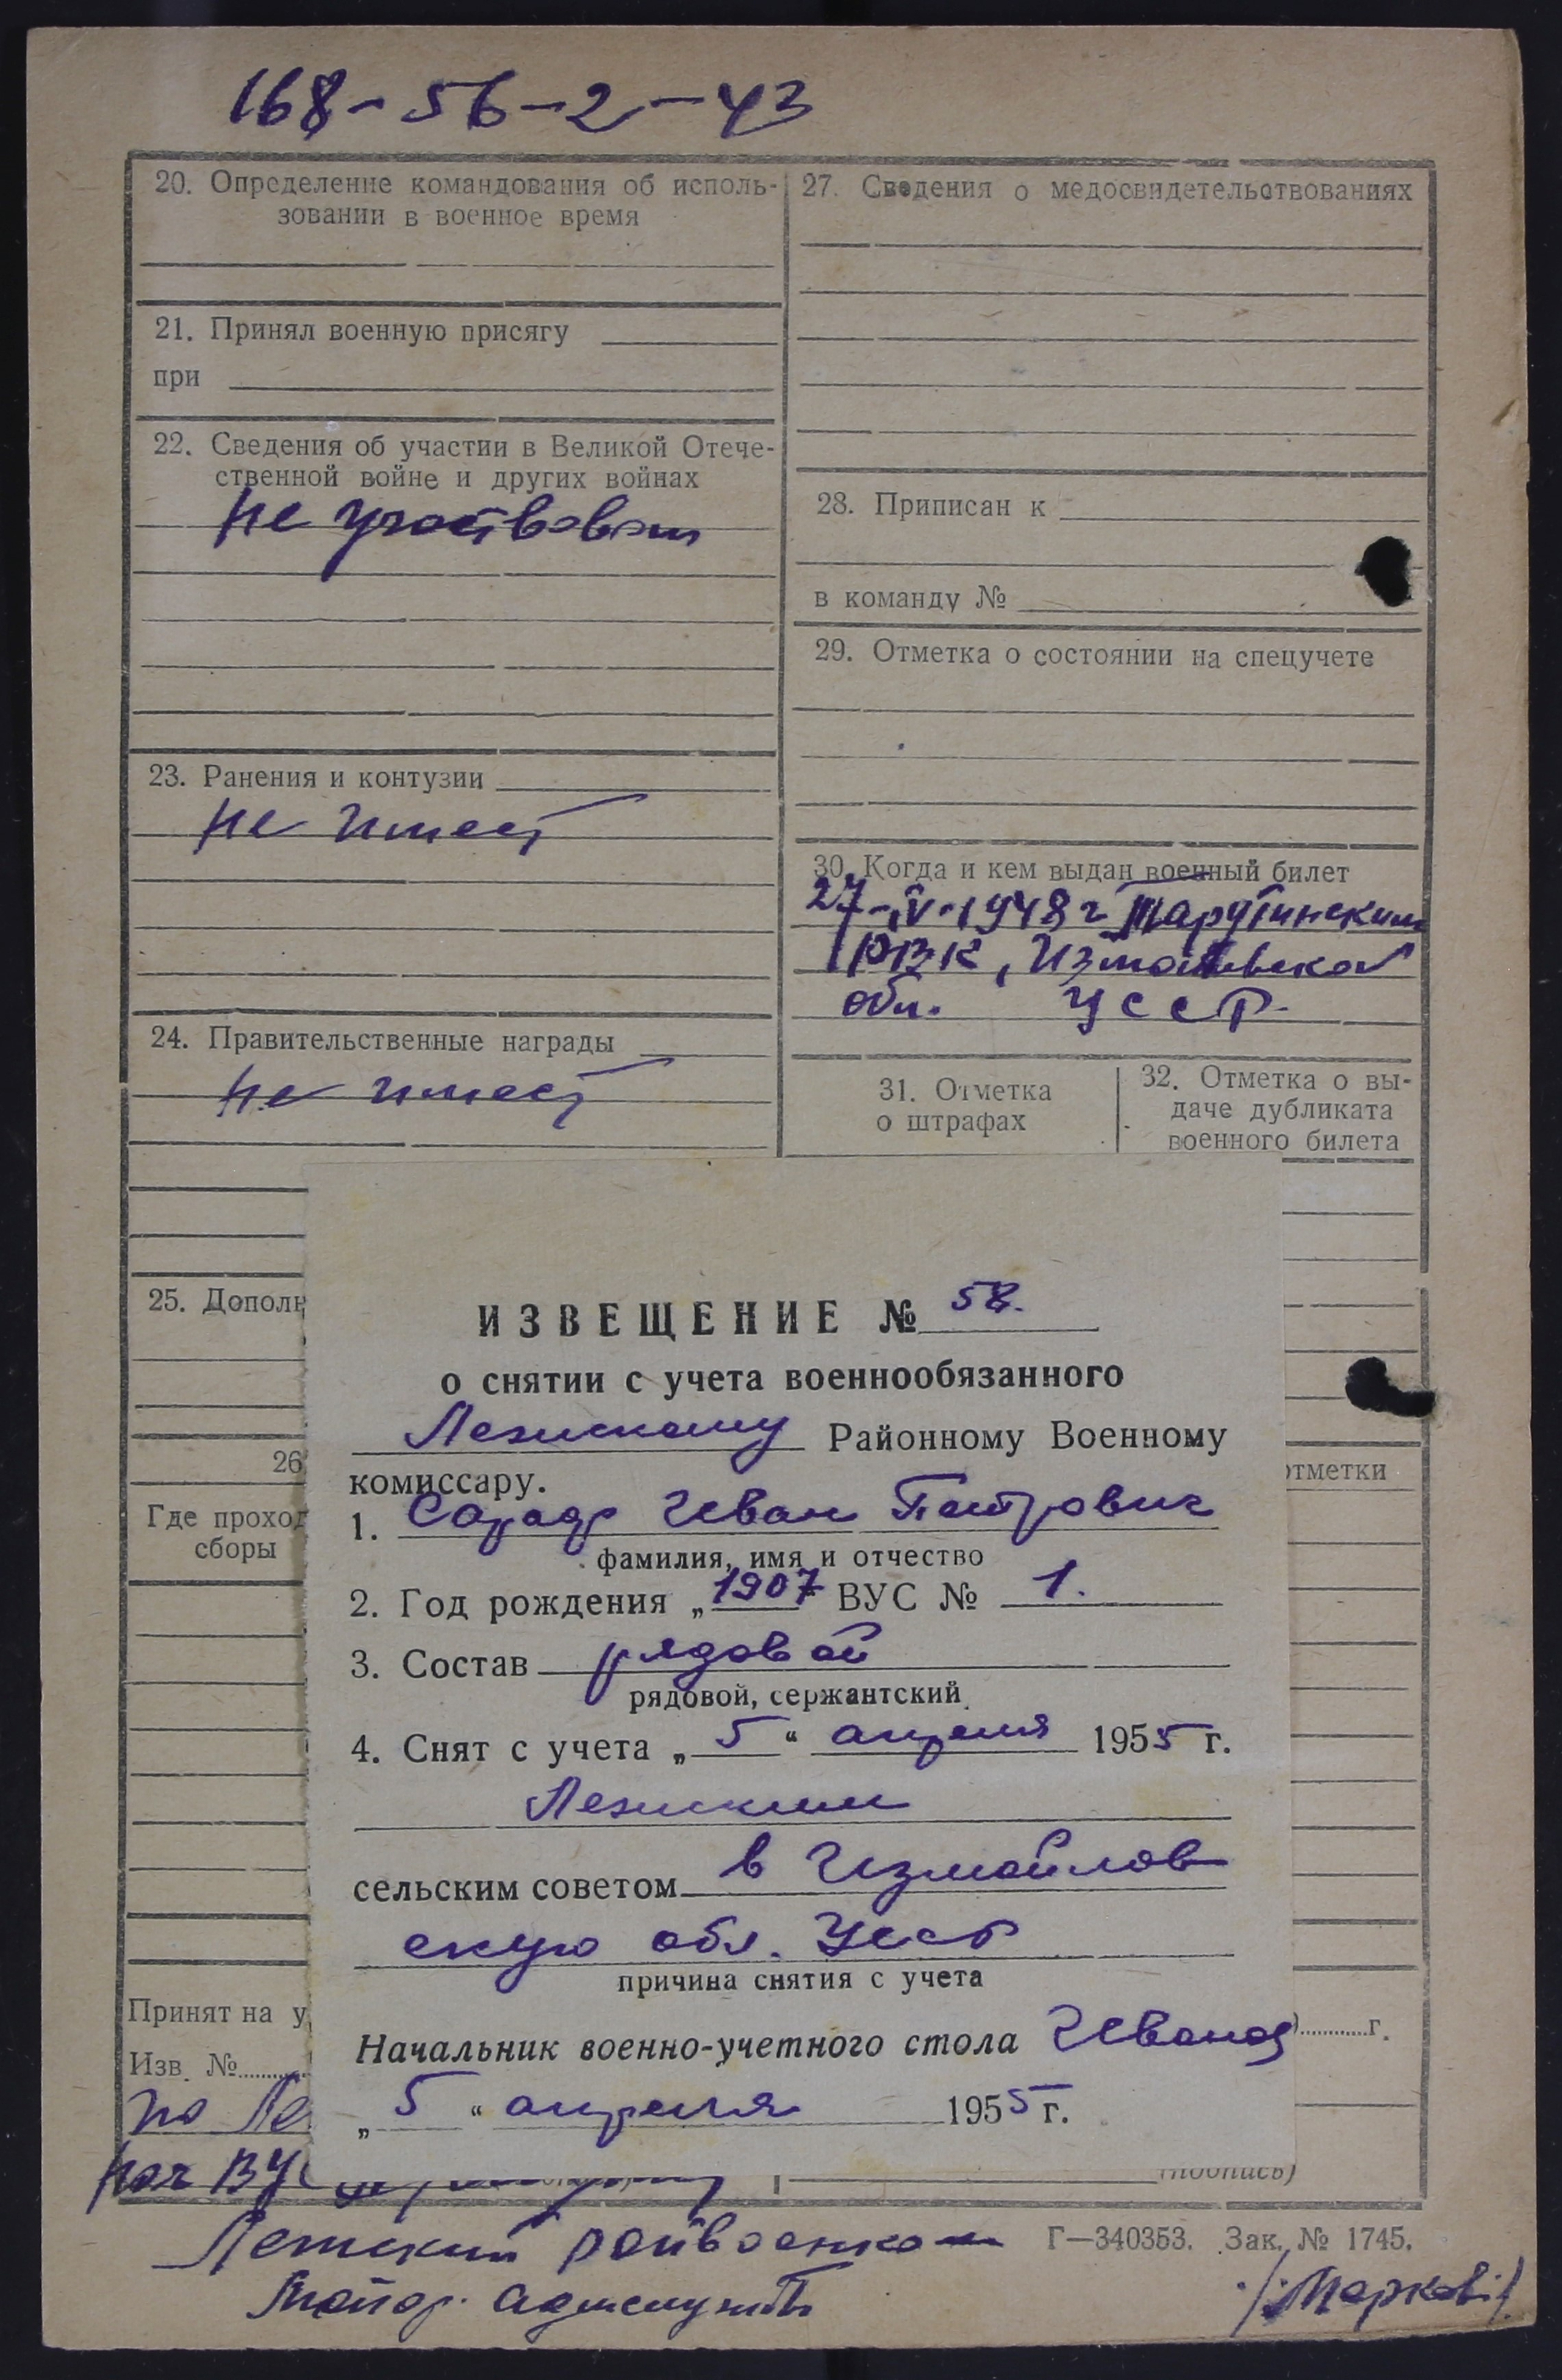 168-56-2-43
20. Определение командования об исполь-
зовании в военное время
21. Принял военную присягу
при
22. Сведения об участии в Великой Отече-
ственной войне и других войнах
не участвовал
23. Ранения и контузии
не имеет
24. Правительственные награды
не имеет
25. Дополн
26
Где проход
сборы
Принят на у
Изв. №
по Ле
нач ВУ
27. Сведения о медосвидетельствованиях
28. Приписан к
в команду №
29. Отметка о состоянии на спецучете
30. Когда и кем выдан военный билет
27-IV-1948 г Тарутинским
РВК, Измаильской
обл. УССР.
31. Отметка
о штрафах
32. Отметка о вы-
даче дубликата
военного билета
отметки
г.
(подпись)
ИЗВЕЩЕНИЕ № 58.
о снятии с учета военнообязанного
Районному Военному
комиссару.
1. Иван Петрович
фамилия, имя и отчество
2. Год рождения „1907“ ВУС № 1.
3. Состав рядовой
рядовой, сержантский
4. Снят с учета „5“ апреля 1955 г.
сельским советом в Измаилов
скую обл. УССР
причина снятия с учета
Начальник военно-учетного стола Иванов
„5“ апреля 1955 г.
райвоенком
Г—340353. Зак. № 1745.
Майор адмслужбы
/Марков/